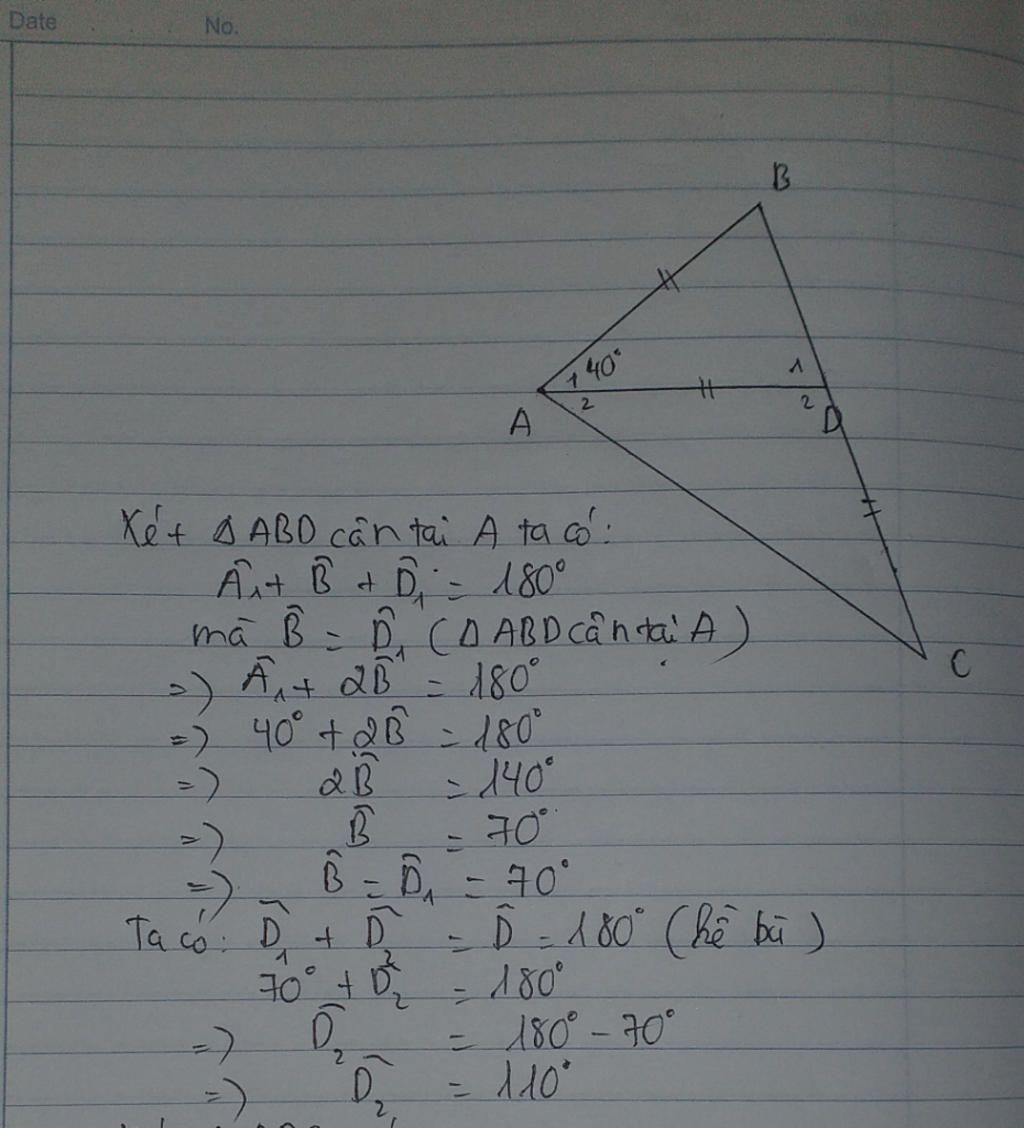 Date No.
B
1 40°
1
A
2
2
D
C
Xét ΔABD cân tại A ta có:
Â₁ + B̂ + D̂₁ = 180°
mà B̂ = D̂₁ (ΔABD cân tại A)
=) Â₁ + 2B̂ = 180°
=) 40° + 2B̂ = 180°
=) 2B̂ = 140°
=) B̂ = 70°
=) B̂ = D̂₁ = 70°
Ta có: D̂₁ + D̂₂ = D̂ = 180° (kề bù)
70° + D̂₂ = 180°
=) D̂₂ = 180° - 70°
=) D̂₂ = 110°